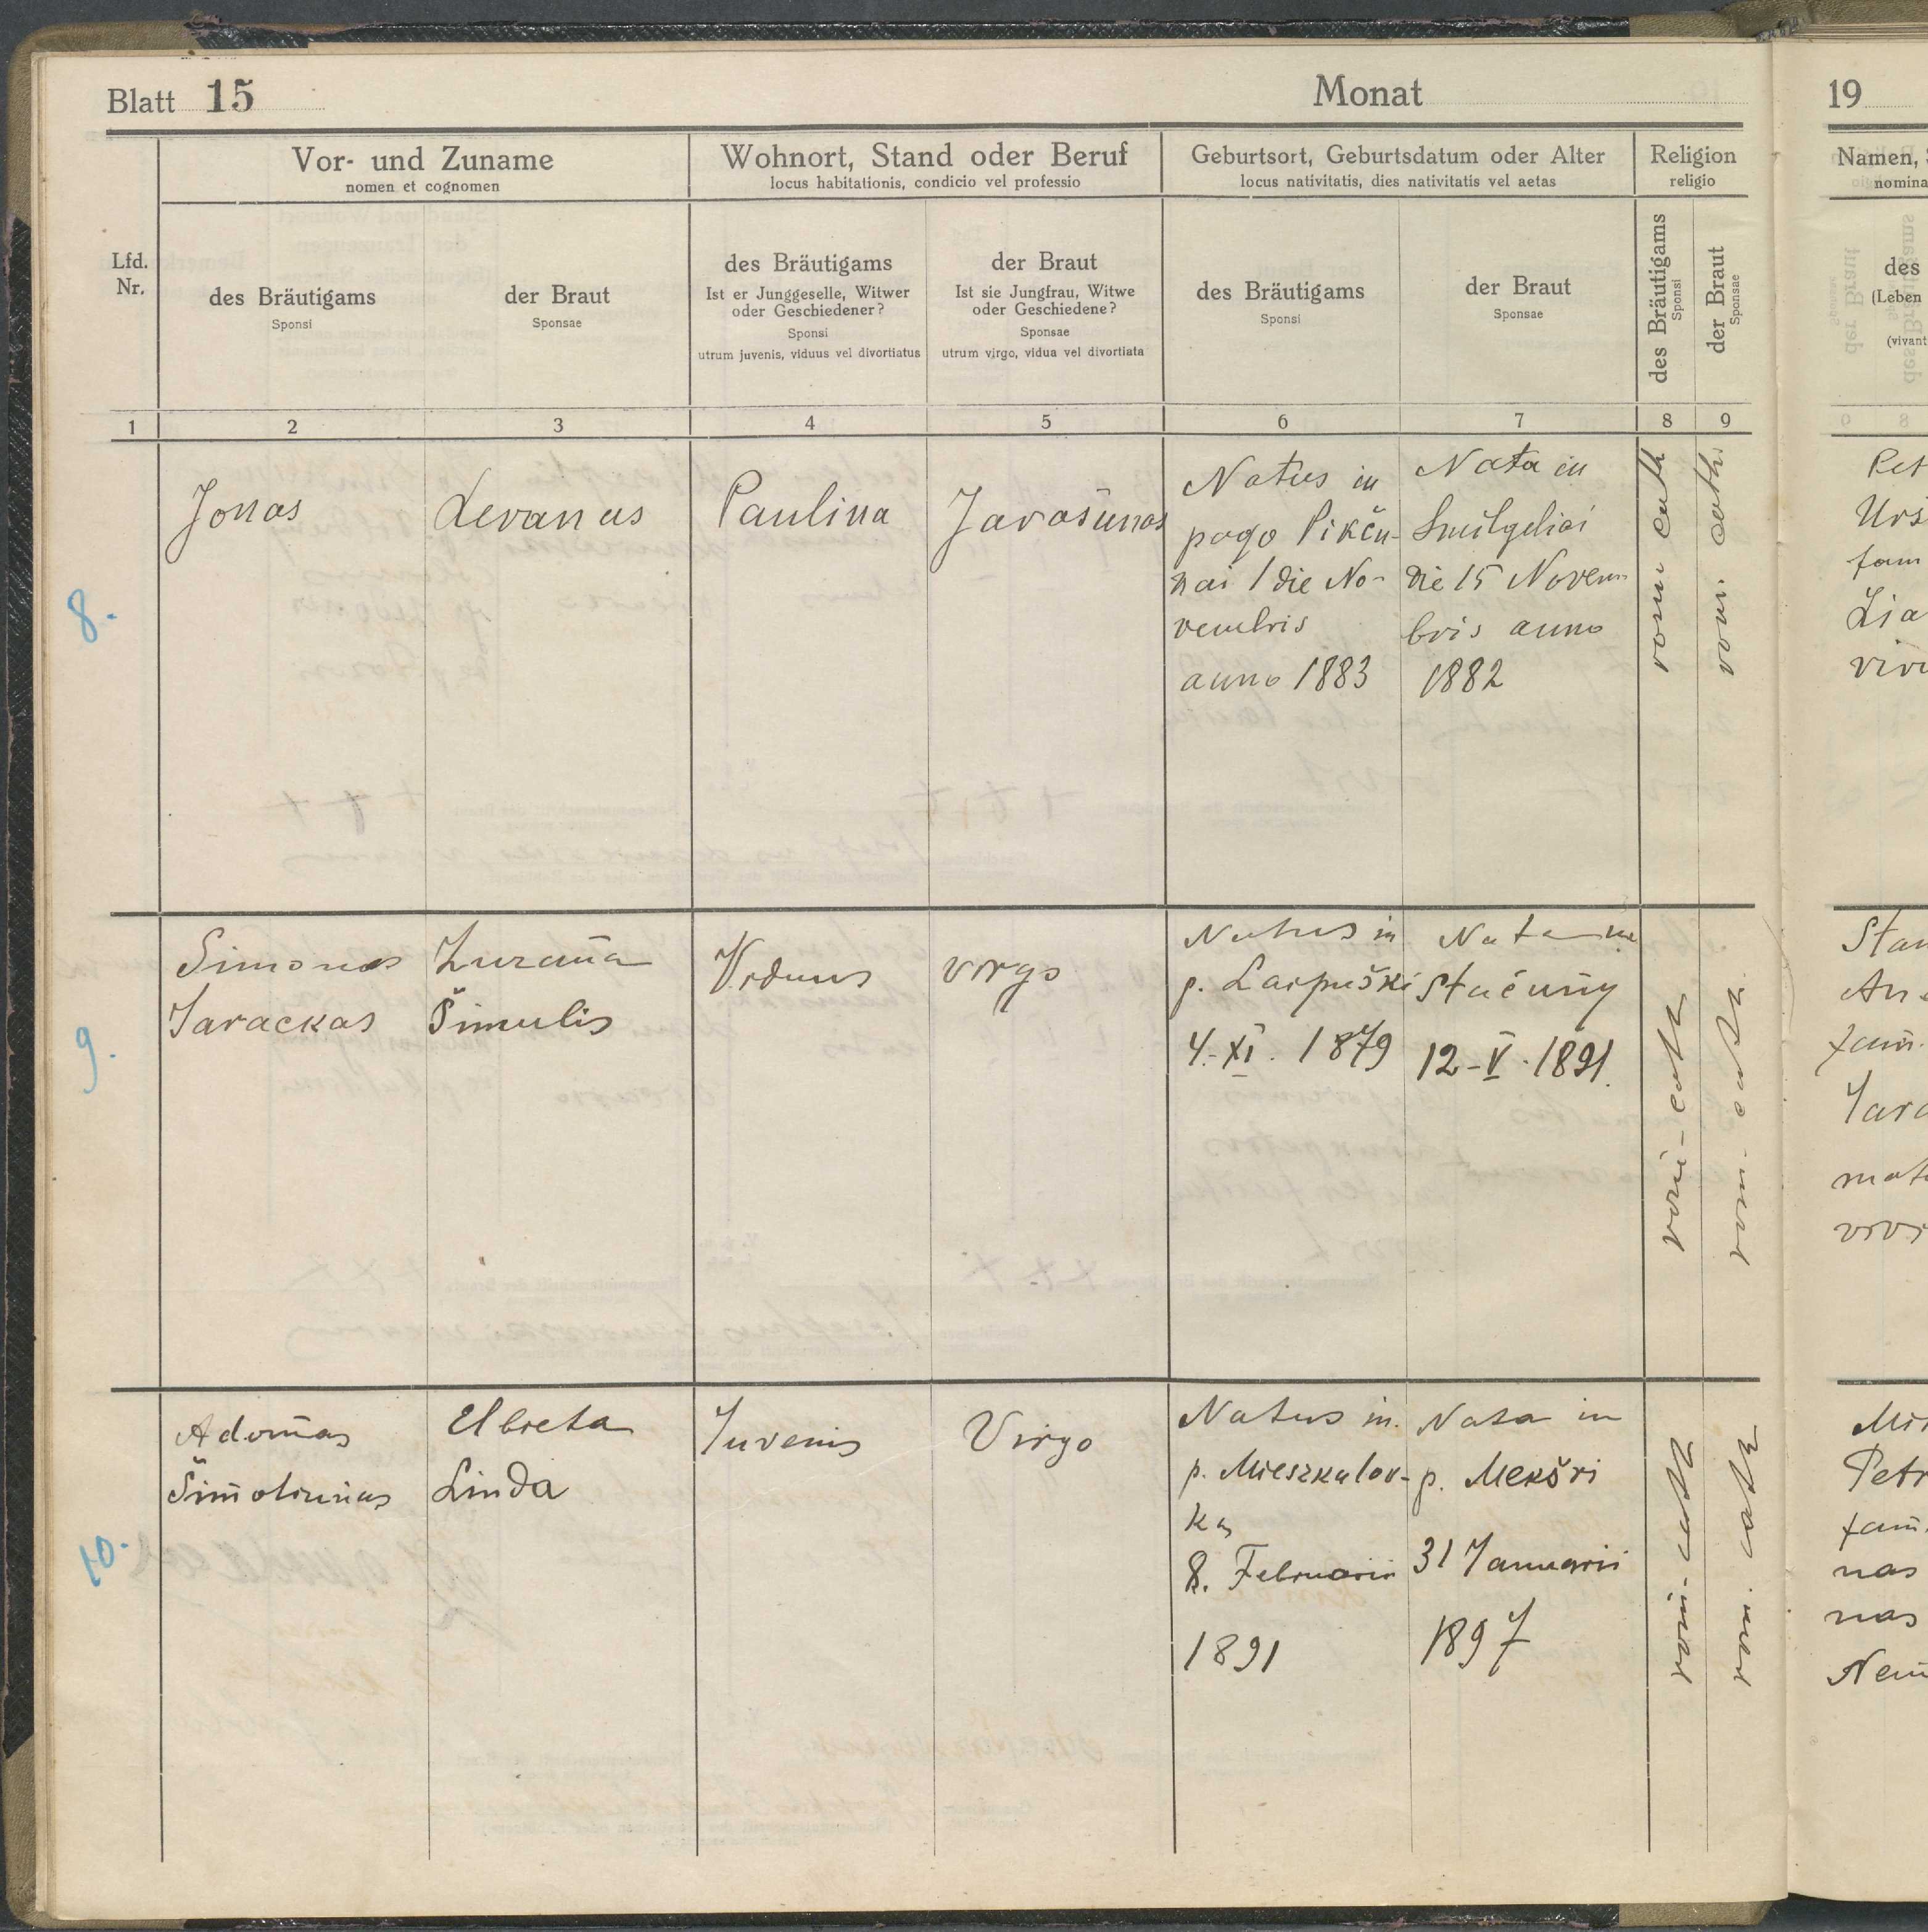 Blatt 15
Monat
Vor- und Zuname
nomen et cognomen
Wohnort, Stand oder Beruf
locus habitationis, condicio vel professio
Geburtsort, Geburtsdatum oder Alter
locus nativitatis, dies nativitatis vel aetas
Religion
religio
Lfd.
Nr.
des Bräutigams
Sponsi
der Braut
Sponsae
des Bräutigams
Ist er Junggeselle, Witwer
oder Geschiedener?
Sponsi
utrum juvenis, viduus vel divortiatus
der Braut
Ist sie Jungfrau, Witwe
oder Geschiedene?
Sponsae
utrum virgo, vidua vel divortiata
des Bräutigams
Sponsi
der Braut
Sponsae
des Bräutigams
Sponsi
der Braut
Sponsae
1 2 3 4 5 6 7 8 9
8.
Jonas
Levanas
Paulina
Jarašunas
Natus in
pago Pikču-
nai 1 die No-
vembris
anno 1883
Nata in
Smilgeliai
die 15 Novem
bris anno
1882
rom cath
rom. cath.
9.
Simonas
Jarackas
Zuzaña
Šimulis
Viduus
virgo
Natus in
p. Laipuški
4.-XI. 1879
Nata in
Stučuny
12-V.1891.
rom-cath
rom-cath.
10.
Adomas
Šimoliunas
Elbieta
Linda
Juvenis
Virgo
Natus in.
p. Mieszkalov-
ka
8. Februarii
1891
Nata in
p. Mekšri
31 Januarii
1897
rom-cath
rom. cath
19
Namen,
nomina
des
(Leben
(vivant
Pet
Urs
fam
Lia
viv
Stan
An
fam.
Jara
mat
viv
Mi
Petr
fam.
nas
nas
Nem